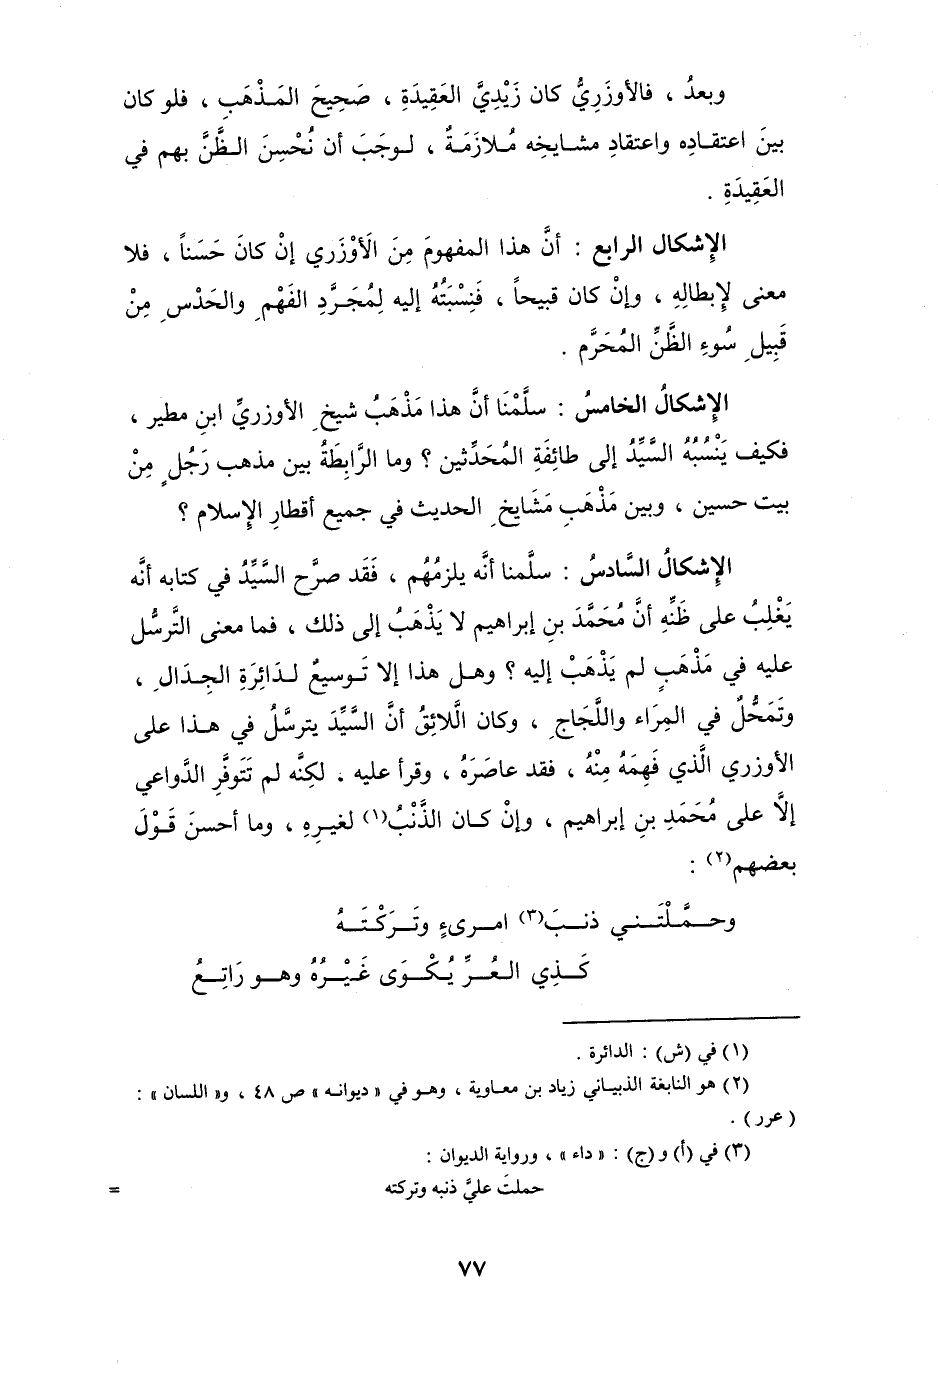 وبعدُ ، فالأوزَرِيُّ كان زَيْدِيَّ العَقِيدَةِ ، صَحِيحَ المَذْهَبِ ، فلو كان
بينَ اعتقادِه واعتقادِ مشايخِه مُلازَمَةٌ ، لوجَبَ أن نُحْسِنَ الظَّنَّ بهم في
العَقِيدَةِ .
الإِشكال الرابع : أنَّ هذا المفهومَ مِنَ الَأوْزَري إنْ كانَ حَسَناً ، فلا
معنى لإِبطالِهِ ، وإنْ كان قبيحاً ، فَنِسْبَتُهُ إليه لِمُجَرَّدِ الفَهْمِ والحَدْسِ مِنْ
قَبِيلِ سُوءِ الظَّنِّ المُحَرَّم .
الإِشكالُ الخامسُ : سلَّمْنَا أنَّ هذا مَذْهَبُ شيخِ الأوزريِّ ابنِ مطير ،
فكيف يَنْسُبُهُ السَّيِّدُ إلى طائِفَةِ المُحَدِّثين ؟ وما الرَّابِطَةُ بين مذهب رَجُلٍ مِنْ
بيت حسين ، وبين مَذْهَبِ مَشَايخِ الحديث في جميع أقطارِ الإِسلام ؟
الإِشكالُ السَّادسُ : سلَّمنا أنَّه يلزمُهُم ، فَقَد صرَّح السَّيِّدُ في كتابه أنَّه
يَغْلِبُ على ظَنِّهِ أنَّ مُحَمَّدَ بنِ إبراهيم لا يَذْهَبُ إلى ذلك ، فما معنى التَّرسُّل
عليه في مَذْهَبٍ لم يَذْهَبْ إليه ؟ وهل هذا إلا تَوسيعٌ لدَائِرَةِ الجِدَالِ ،
وتَمَحُّلٌ في المِرَاء واللَّجَاجِ ، وكان الَّلائِقُ أنَّ السَّيِّدَ يترسَّلُ في هذا على
الأوزري الَّذي فَهِمَهُ مِنْهُ ، فقد عاصَرَهُ ، وقرأ عليه . لكِنَّه لم تَتَوفَّرِ الدَّواعي
إلَّا على مُحَمَدِ بنِ إبراهيم ، وإنْ كان الذَّنْبُ(١) لغيرِهِ ، وما أحسنَ قَوْلَ
بعضهم(٢) :
وحمَّلْتَني ذنبَ(٣) امرىءٍ وتَرَكْتَهُ
كَذِي العُرِّ يُكْوَى غَيْرُهُ وهو رَاتِعُ
(١) في (ش) : الدائرة .
(٢) هو النابغة الذبياني زياد بن معاوية ، وهو في « ديوانه » ص ٤٨ ، و« اللسان » :
( عرر ) .
(٣) في (أ) و(ج) : « داء » ، ورواية الديوان :
حملتَ عليَّ ذنبه وتركته =
٧٧